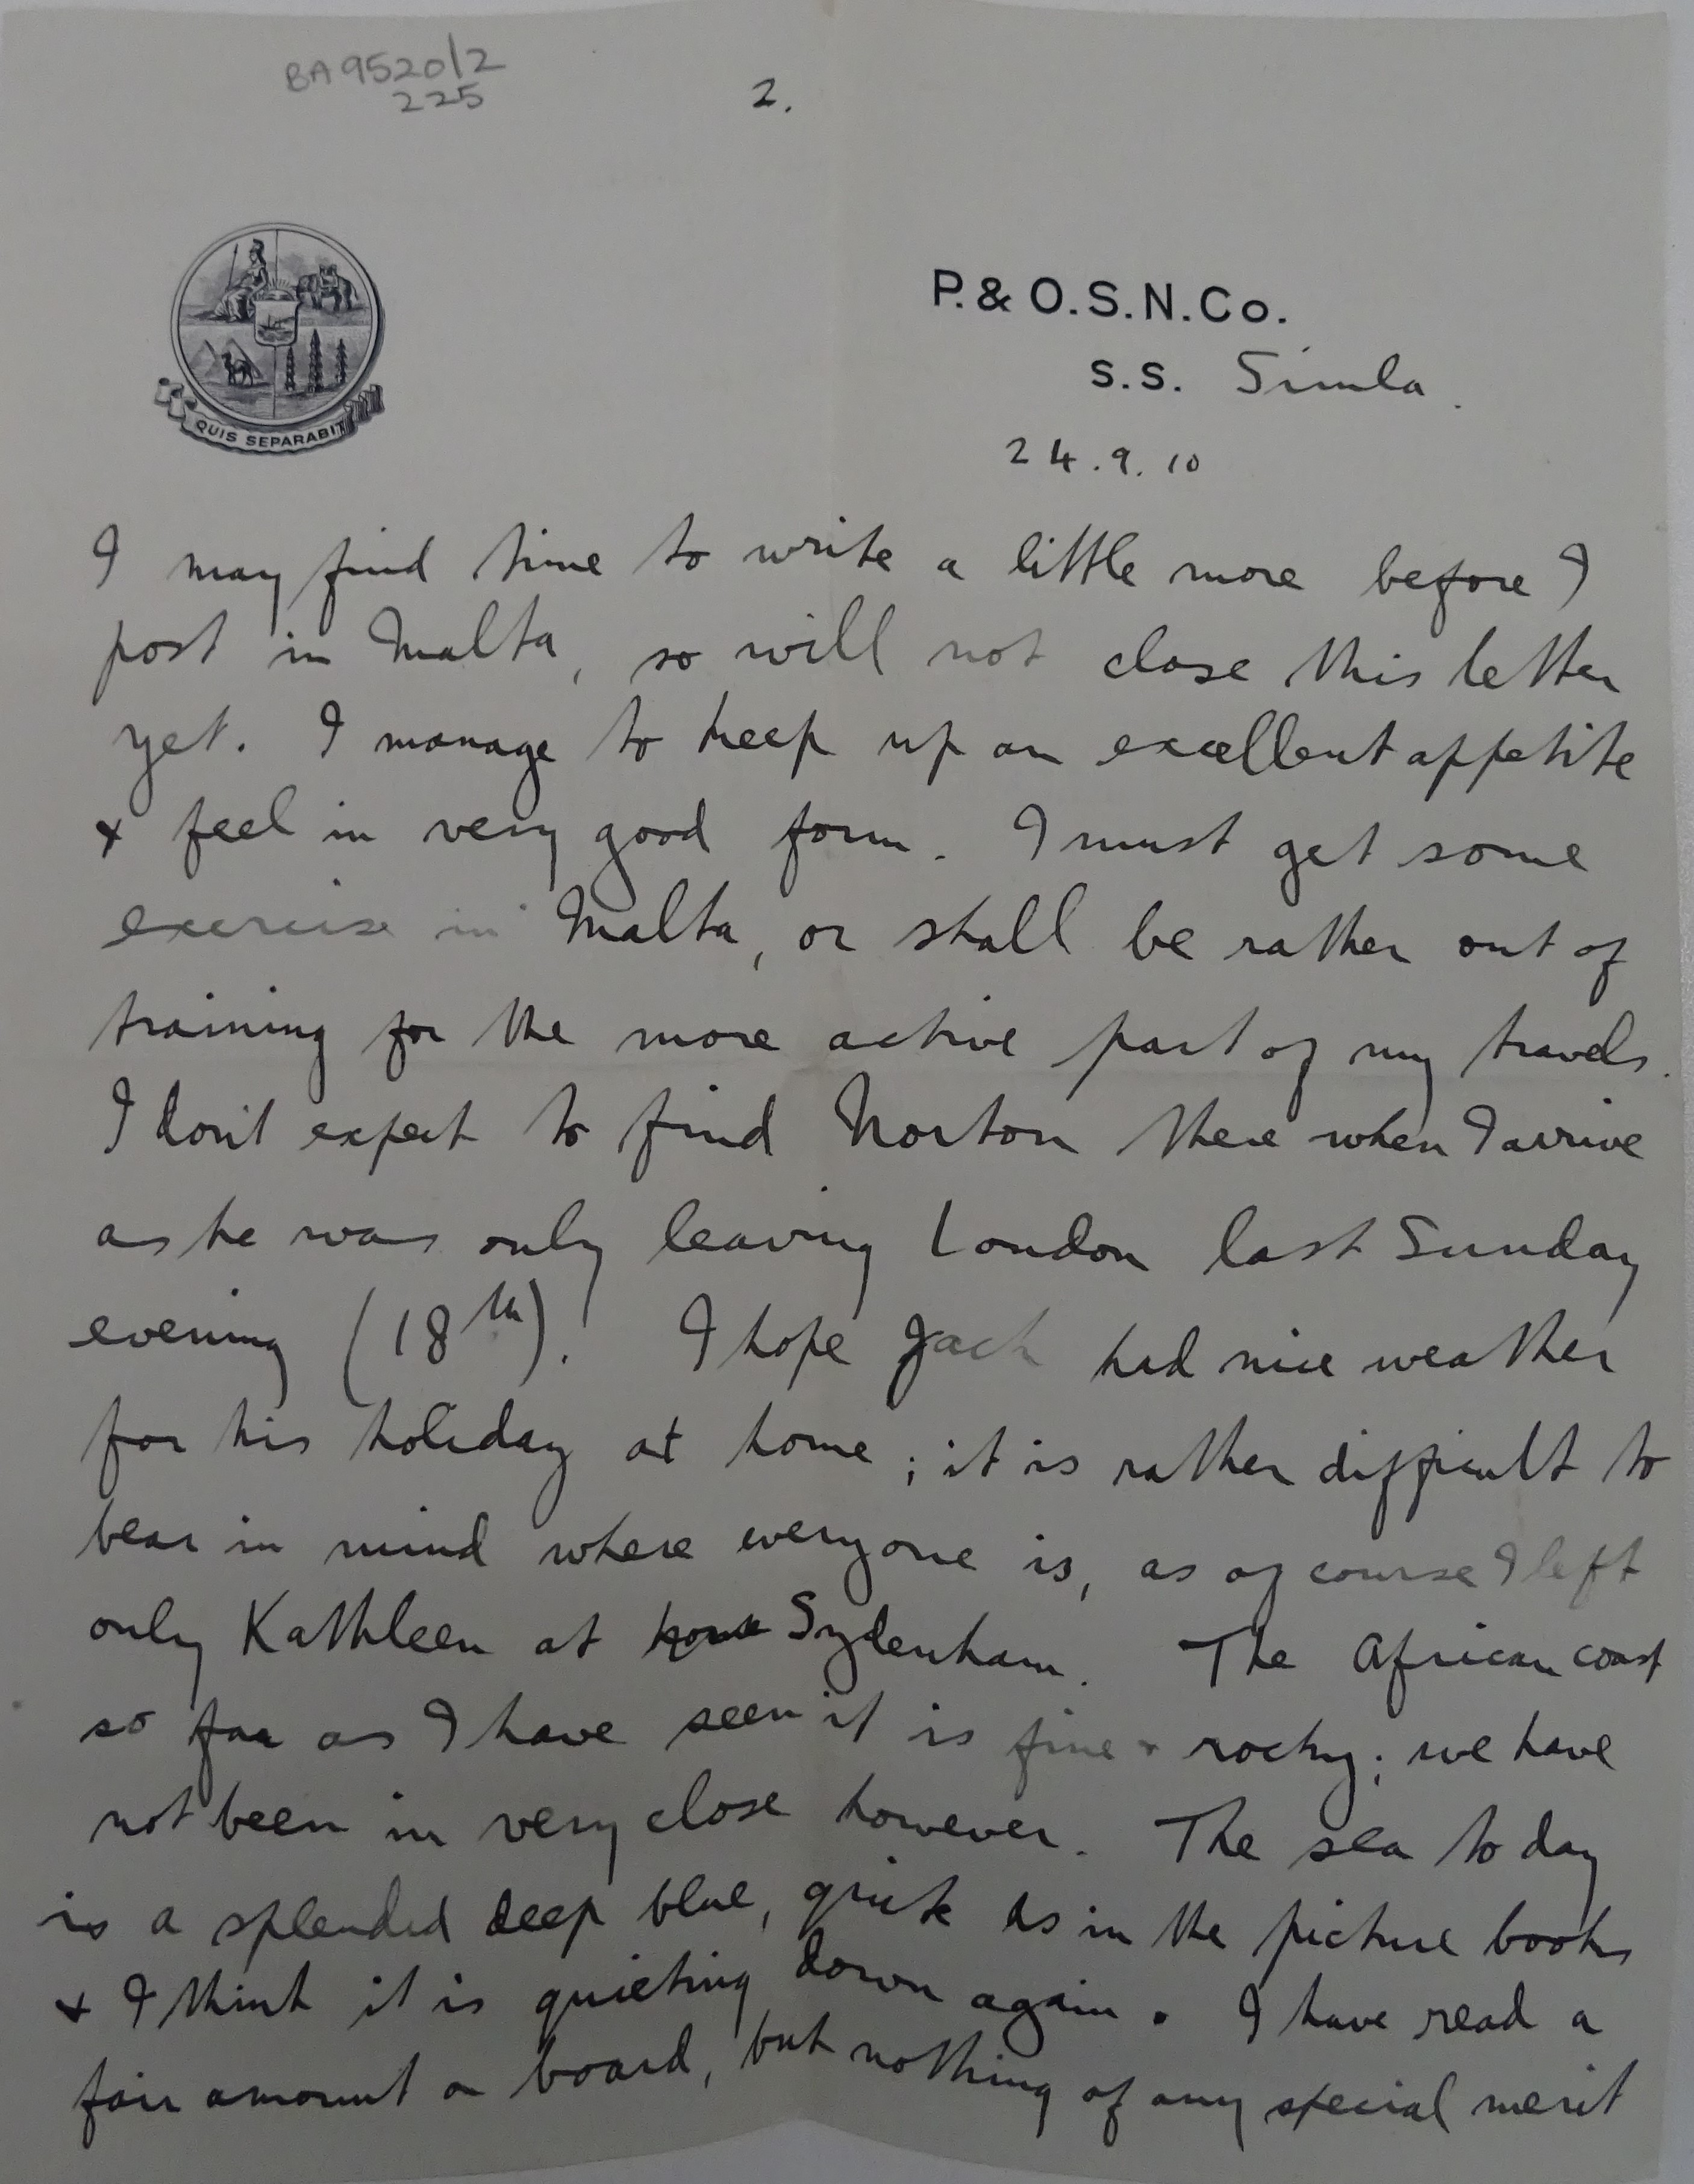 BA9520/2
225
2.
QUIS SEPARABIT
P. & O. S. N. Co.
S.S. Simla.
24.9.10
I may find time to write a little more before I
post in Malta, so will not close this letter
yet. I manage to keep up an excellent appetite
& feel in very good form. I must get some
exercise in Malta, or shall be rather out of
training for the more active part of my travels.
I don't expect to find Norton there when I arrive
as he was only leaving London last Sunday
evening (18th). I hope Jack had nice weather
for his holiday at home; it is rather difficult to
bear in mind where everyone is, as of course I left
only Kathleen at Sydenham. The African coast
so far as I have seen it is fine & rocky; we have
not been in very close however. The sea to day
is a splendid deep blue, quite as in the picture books
& I think it is quieting down again. I have read a
fair amount on board, but nothing of any special merit